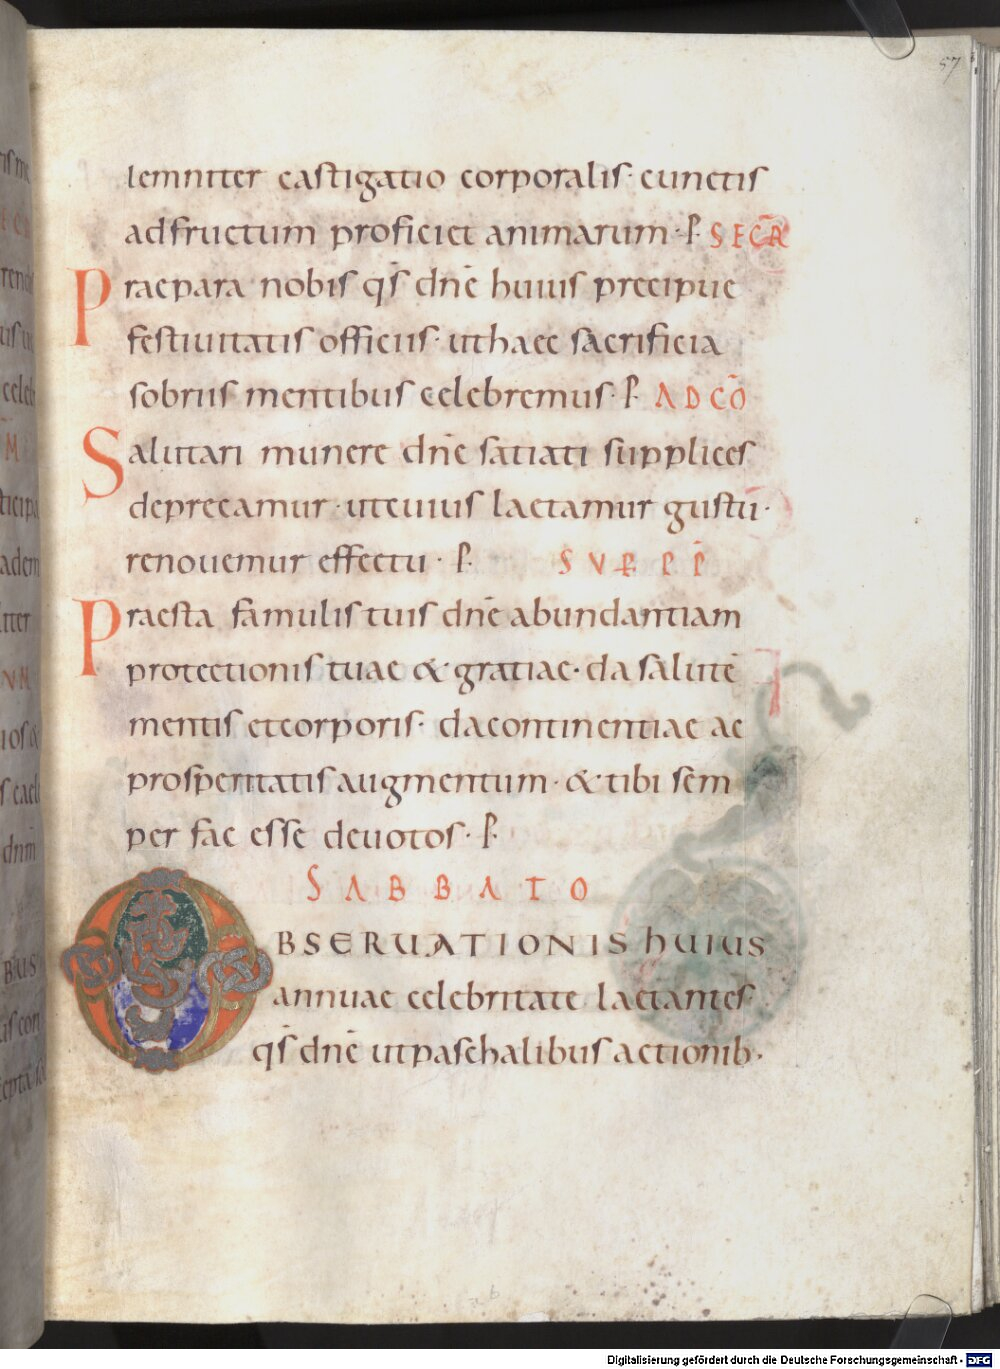 57
lemniter castigatio corporalis· cunctis
adfructum proficiet animarum· P̱ SECR̄
Praepara nobis qs̄ dn̄e huius precipue
festiuitatis officiis· uthaec sacrificia
sobriis mentibus celebremus· P̱ ADCŌ
Salutari munere dn̄e satiati supplices
deprecamur· utcuius laetamur gustū·
renouemur effectu· P̱ SVP̱ P̱P̄
Praesta famulis tuis dn̄e abundantiam
protectionis tuae & gratiae· da salutē
mentis etcorporis· dacontinentiae ac
prosperitatis augmentum· & tibi sem
per fac esse deuotos· P̱
SABBATO
OBSERUATIONIS huius
annuae celebritate laetantes
qs̄ dn̄e utpaschalibus actionib·
Digitalisierung gefördert durch die Deutsche Forschungsgemeinschaft - DFG